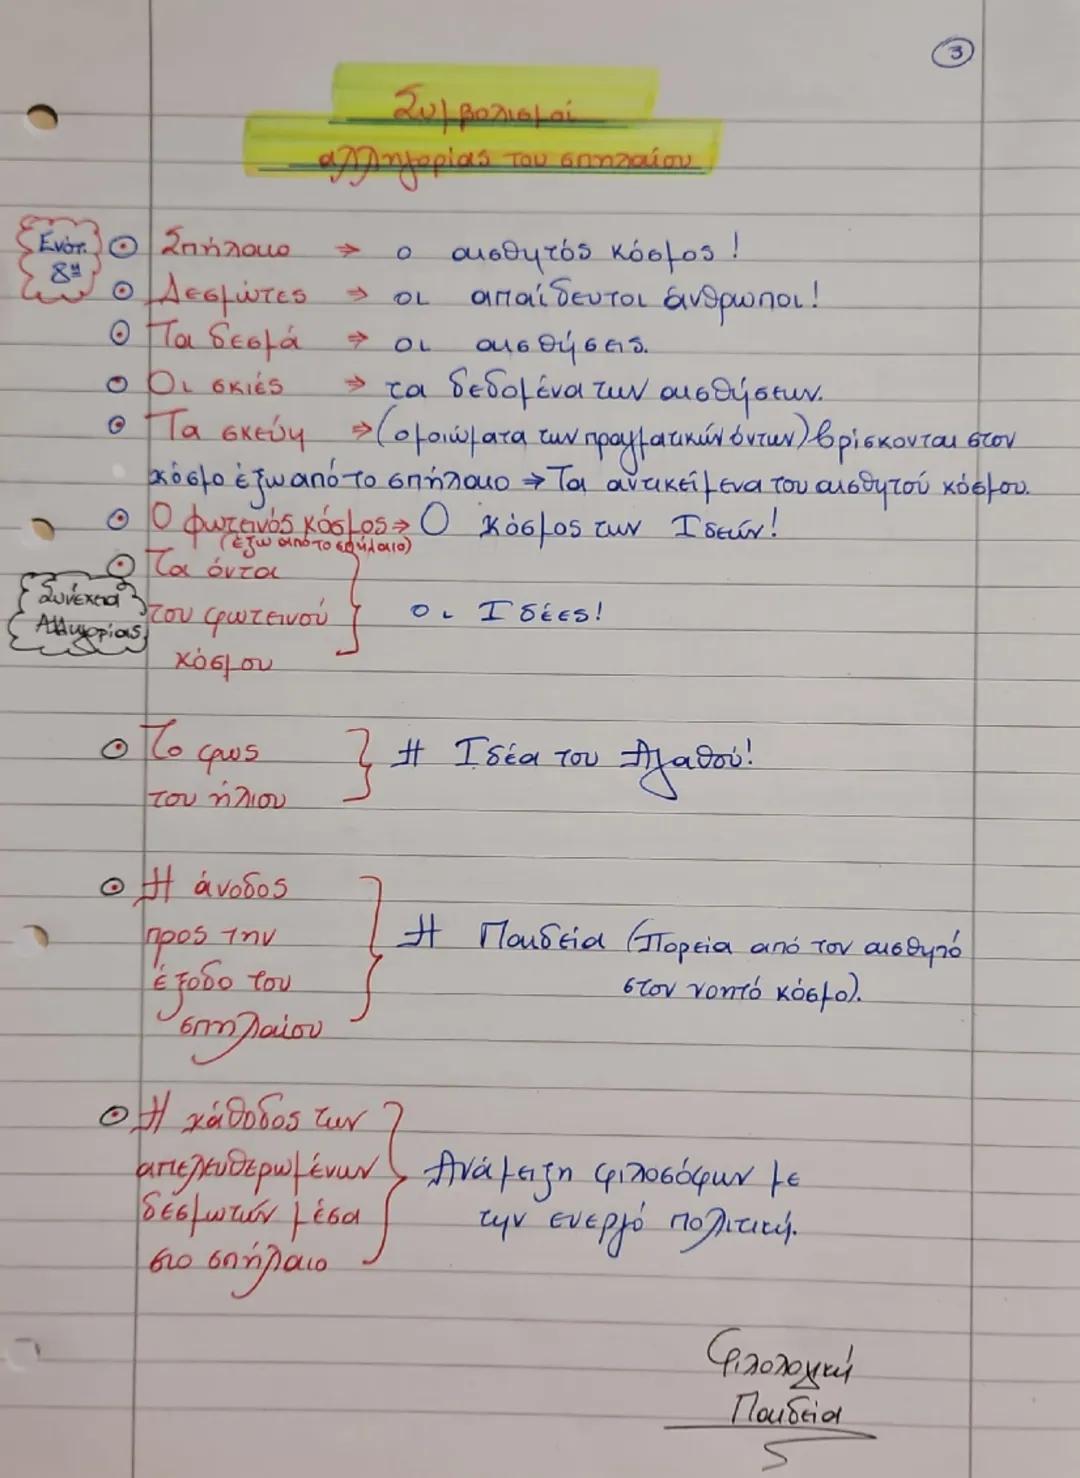 3
Συμβολισμοί
αλληγορίας του σπηλαίου
Ενότ. 8η
Σπήλαιο ⇒ ο αισθητός κόσμος!
Δεσμώτες ⇒ οι απαίδευτοι άνθρωποι!
Τα δεσμά ⇒ οι αισθήσεις.
Οι σκιές ⇒ τα δεδομένα των αισθήσεων.
Τα σκεύη ⇒ (ομοιώματα των πραγματικών όντων) βρίσκονται στον
κόσμο έξω από το σπήλαιο ⇒ Τα αντικείμενα του αισθητού κόσμου.
Ο φωτεινός κόσμος ⇒ Ο κόσμος των Ιδεών!
(έξω από το σπήλαιο)
Τα όντα
Συνέχεια
Αλληγορίας
του φωτεινού } οι Ιδέες!
κόσμου
Το φως } Η Ιδέα του Αγαθού!
του ήλιου
Η άνοδος
προς την } Η Παιδεία (Πορεία από τον αισθητό
έξοδο του στον νοητό κόσμο).
σπηλαίου
Η κάθοδος των
απελευθερωμένων } Ανάμειξη φιλοσόφων με
δεσμωτών μέσα την ενεργό πολιτική.
στο σπήλαιο
Φιλολογική
Παιδεία